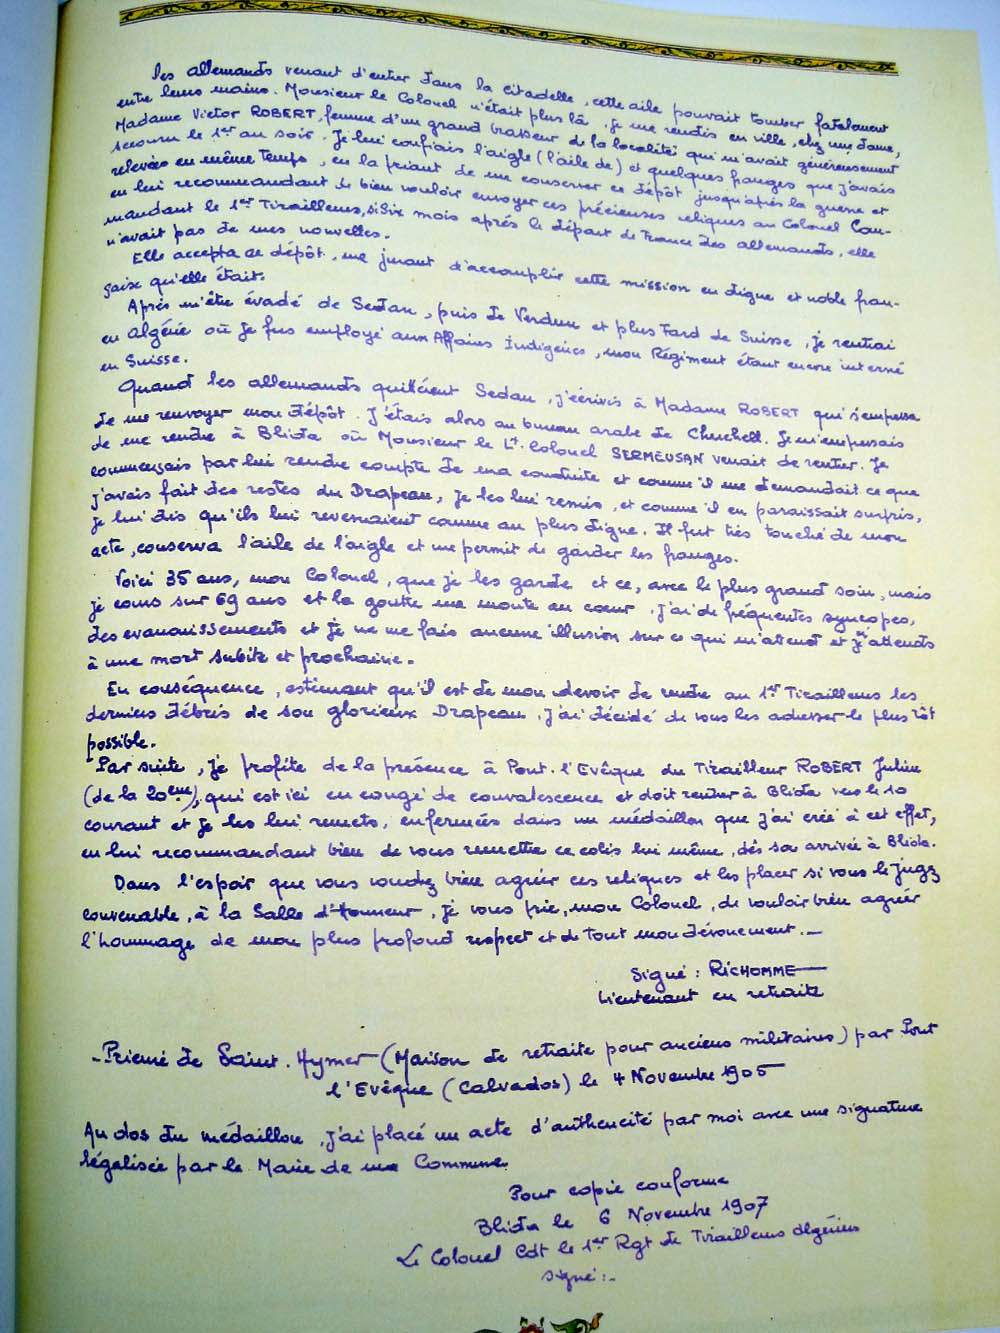 les allemands venant d'entrer dans la citadelle, cette aile pouvait tomber fatalement
entre leurs mains. Monsieur le Colonel n'était plus là, je me rendis en ville, chez une dame,
Madame Victor ROBERT, femme d'un grand brasseur de la localité qui m'avait généreusement
secouru le 1er au soir. Je lui confiais l'aigle (l'aile de) et quelques franges que j'avais
relevées en même temps, en la priant de me conserver ce dépôt jusqu'après la guerre et
en lui recommandant de bien vouloir envoyer ces précieuses reliques au Colonel Com-
mandant le 1er Tirailleurs, si six mois après le départ de France des allemands, elle
n'avait pas de mes nouvelles.
Elle accepta ce dépôt, me jurant d'accomplir cette mission en digne et noble fran-
çaise qu'elle était.
Après m'être évadé de Sedan, puis de Verdun et plus tard de Suisse, je rentrai
en Algérie où je fus employé aux Affaires Indigènes, mon Régiment étant encore interné
en Suisse.
Quand les allemands quittèrent Sedan, j'écrivis à Madame ROBERT qui s'empressa
de me renvoyer mon dépôt. J'étais alors au bureau arabe de Cherchell. Je m'empressais
de me rendre à Blida où Monsieur le Lt. Colonel SERMENSAN venait de rentrer. Je
commençais par lui rendre compte de ma conduite et comme il me demandait ce que
j'avais fait des restes du Drapeau, je les lui remis, et comme il en paraissait surpris,
je lui dis qu'ils lui revenaient comme au plus digne. Il fut très touché de mon
acte, conserva l'aile de l'aigle et me permit de garder les franges.
Voici 35 ans, mon Colonel, que je les garde et ce, avec le plus grand soin, mais
je cours sur 69 ans et la goutte me monte au cœur, j'ai de fréquentes syncopes,
des évanouissements et je ne me fais aucune illusion sur ce qui m'attend et je m'attends
à une mort subite et prochaine.
En conséquence, estimant qu'il est de mon devoir de rendre au 1er Tirailleurs les
derniers débris de son glorieux Drapeau, j'ai décidé de vous les adresser le plus tôt
possible.
Par suite, je profite de la présence à Pont-l'Evêque du Tirailleur ROBERT Julien
(de la 20ème), qui est ici en congé de convalescence et doit rentrer à Blida vers le 10
courant et je les lui remets, enfermées dans un médaillon que j'ai créé à cet effet,
en lui recommandant bien de vous remettre ce colis lui même, dès son arrivée à Blida.
Dans l'espoir que vous voudrez bien agréer ces reliques et les placer si vous le jugez
convenable, à la Salle d'Honneur, je vous prie, mon Colonel, de vouloir bien agréer
l'hommage de mon plus profond respect et de tout mon dévouement.—
Signé : RICHOMME
Lieutenant en retraite
-Prieuré de Saint-Hymer (Maison de retraite pour anciens militaires) par Pont
l'Evêque (Calvados) le 4 Novembre 1905
Au dos du médaillon, j'ai placé un acte d'authencité par moi avec une signature
légalisée par le Maire de ma Commune.
Pour copie conforme
Blida le 6 Novembre 1907
Le Colonel Cdt le 1er Rgt de Tirailleurs algériens
signé :-